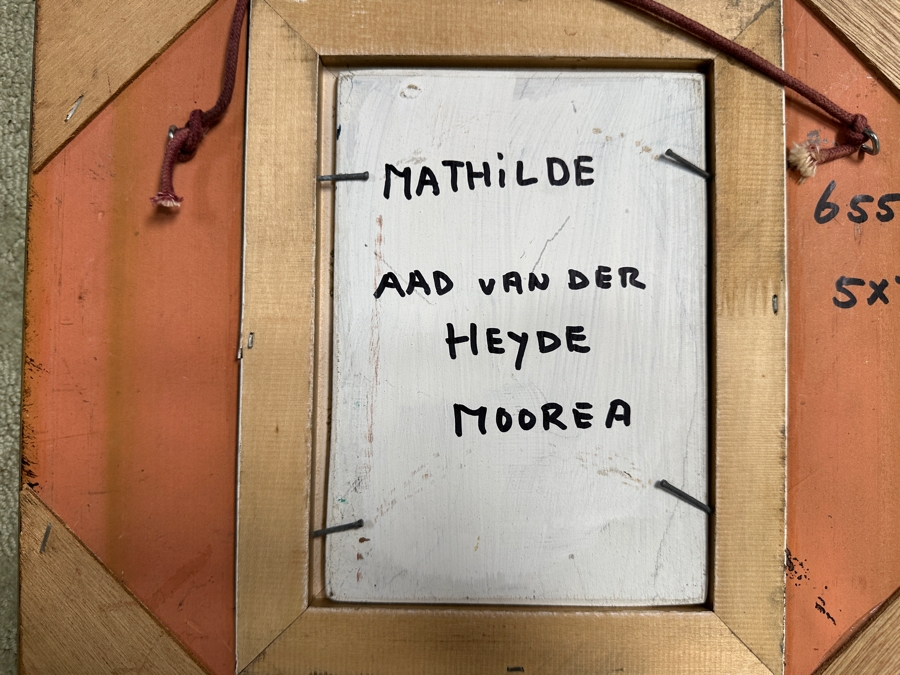 MATHiLDE
AAD vAN DER
HEYDE
MOOREA
655
5x